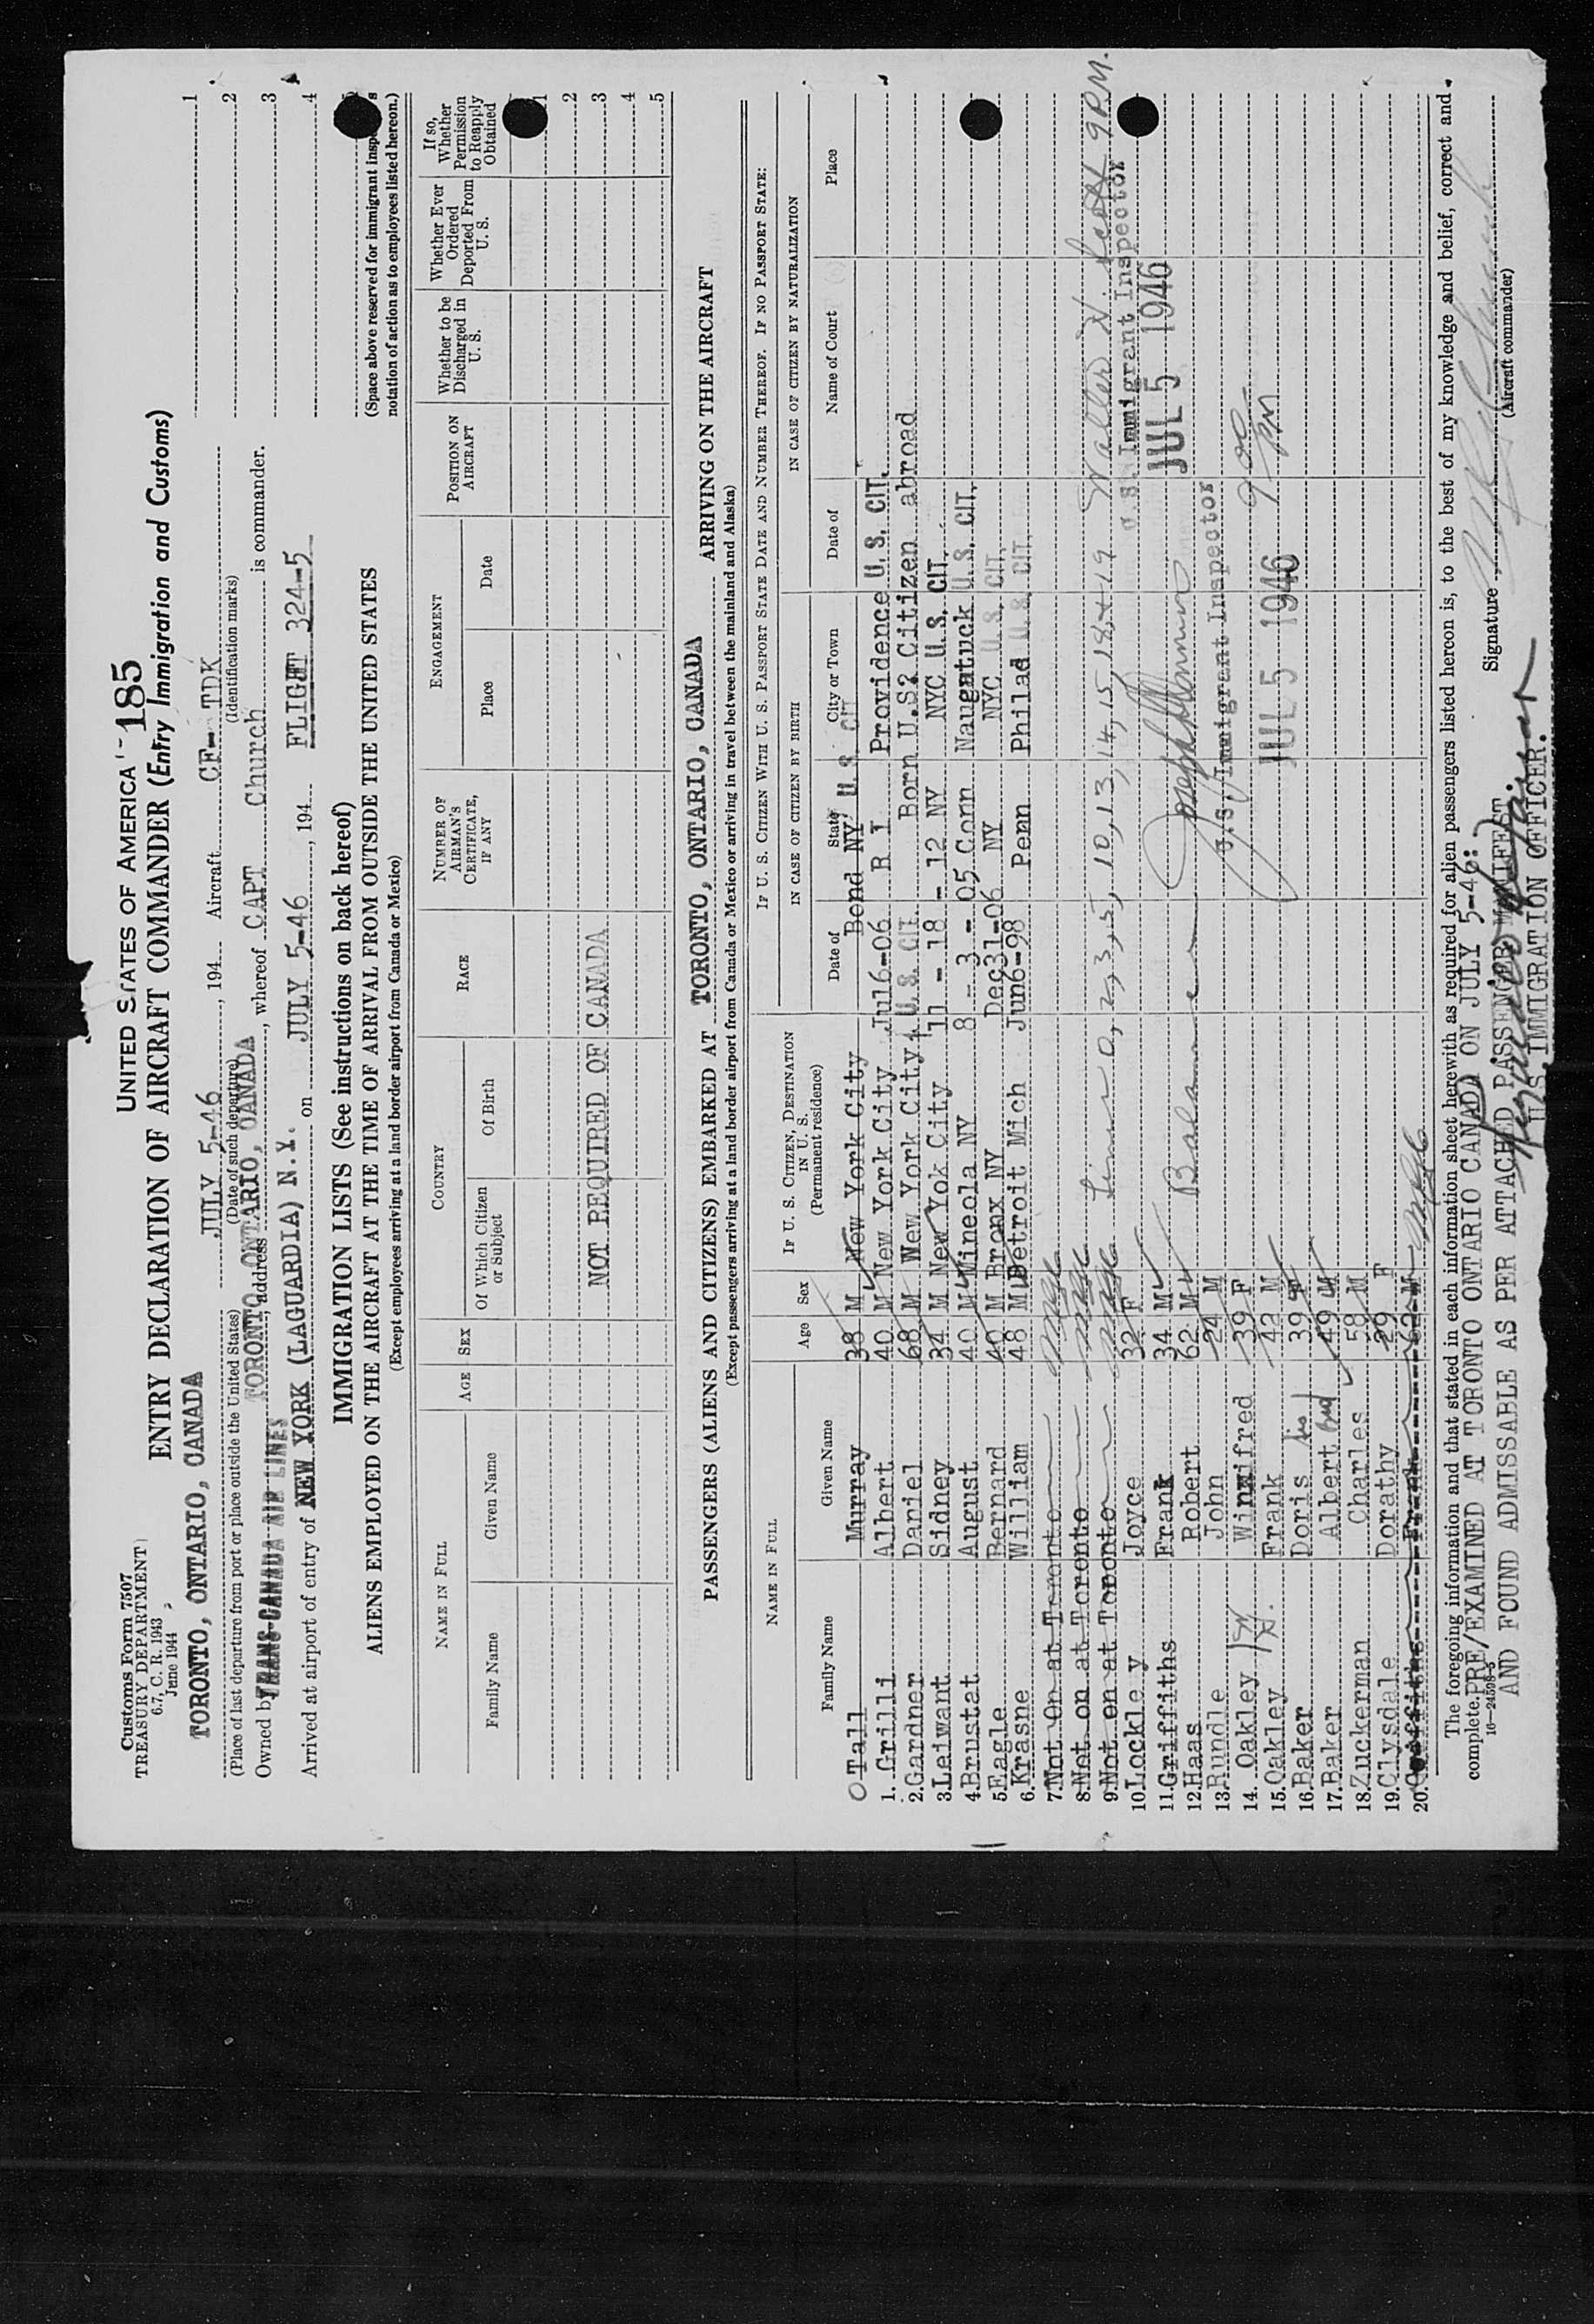 Customs Form 7507
TREASURY DEPARTMENT
6.7, C. R. 1943
June 1944
UNITED STATES OF AMERICA - 185
ENTRY DECLARATION OF AIRCRAFT COMMANDER (Entry Immigration and Customs)
TORONTO, ONTARIO, CANADA JULY 5-46, 194 Aircraft CF- TDK
(Place of last departure from port or place outside the United States) (Date of such departure) (Identification marks)
Owned by TRANS-CANADA AIR LINES, address TORONTO, ONTARIO, CANADA, whereof CAPT Church is commander.
Arrived at airport of entry of NEW YORK (LAGUARDIA) N.Y. on JULY 5-46, 194 FLIGHT 324-5
1
2
3
4
(Space above reserved for immigrant inspe s
notation of action as to employees listed hereon.)
IMMIGRATION LISTS (See instructions on back hereof)
ALIENS EMPLOYED ON THE AIRCRAFT AT THE TIME OF ARRIVAL FROM OUTSIDE THE UNITED STATES
(Except employees arriving at a land border airport from Canada or Mexico)
NAME IN FULL AGE SEX COUNTRY RACE NUMBER OF AIRMAN'S CERTIFICATE, IF ANY ENGAGEMENT POSITION ON AIRCRAFT Whether to be Discharged in U. S. Whether Ever Ordered Deported From U. S. If so, Whether Permission to Reapply Obtained
Family Name Given Name Of Which Citizen or Subject Of Birth Place Date
1
2
NOT REQUIRED OF CANADA 3
4
5
PASSENGERS (ALIENS AND CITIZENS) EMBARKED AT TORONTO, ONTARIO, CANADA ARRIVING ON THE AIRCRAFT
(Except passengers arriving at a land border airport from Canada or Mexico or arriving in travel between the mainland and Alaska)
NAME IN FULL Age Sex IF U. S. CITIZEN, DESTINATION IN U. S. (Permanent residence) IF U. S. CITIZEN WITH U. S. PASSPORT STATE DATE AND NUMBER THEREOF. IF NO PASSPORT STATE:
IN CASE OF CITIZEN BY BIRTH IN CASE OF CITIZEN BY NATURALIZATION
Family Name Given Name Date of State City or Town Date of Name of Court Place
0 Tall Murray 38 M New York City Bend NY U. S. CIT
1. Grilli Albert 40 M New York City Jul6-06 R I Providence U. S. CIT.
2. Gardner Daniel 68 M New York City U. S. CIT. Born U.S? Citizen abroad
3 Leiwant Sidney 34 M New Yok City 11 - 18 - 12 NY NYC U. S. CIT.
4. Brustat August 40 M Mineola NY 8 - 3 - 05 Conn Naugatuck U. S. CIT.
5 Eagle Bernard 40 M Bronx NY Dec31-06 NY NYC U. S. CIT.
6. Krasne William 48 M Detroit Mich Jun6-98 Penn Philad U. S. CIT.
7. Not On at Toronto
8 Not on at Toronto
9 Not on at Toronto 0, 2, 3, 5, 10, 13, 14, 15, 18, + 19 Walter 9 P.M.
10 Lockle y Joyce 32 F U.S. Immigrant Inspector
11. Griffiths Frank 34 M JUL 5 1946
12 Haas Robert 62 M Balance
13. Rundle John 24 M U.S. Immigrant Inspector
14. Oakley Winnifred 39 F
15. Oakley Frank 42 M JUL 5 1946 9 00 PM
16. Baker Doris 39 F
17. Baker Albert 49 M
18. Zuckerman Charles 58 M
19. Clysdale Dorathy 29 F
20. Griffiths Frank 62 M
The foregoing information and that stated in each information sheet herewith as required for alien passengers listed hereon is, to the best of my knowledge and belief, correct and
complete. PRE/EXAMINED AT TORONTO ONTARIO CANADA ON JULY 5-46: Signature
16—24598-5 (Aircraft commander)
AND FOUND ADMISSABLE AS PER ATTACHED PASSENGERS MANIFEST
U.S. IMMIGRATION OFFICER.